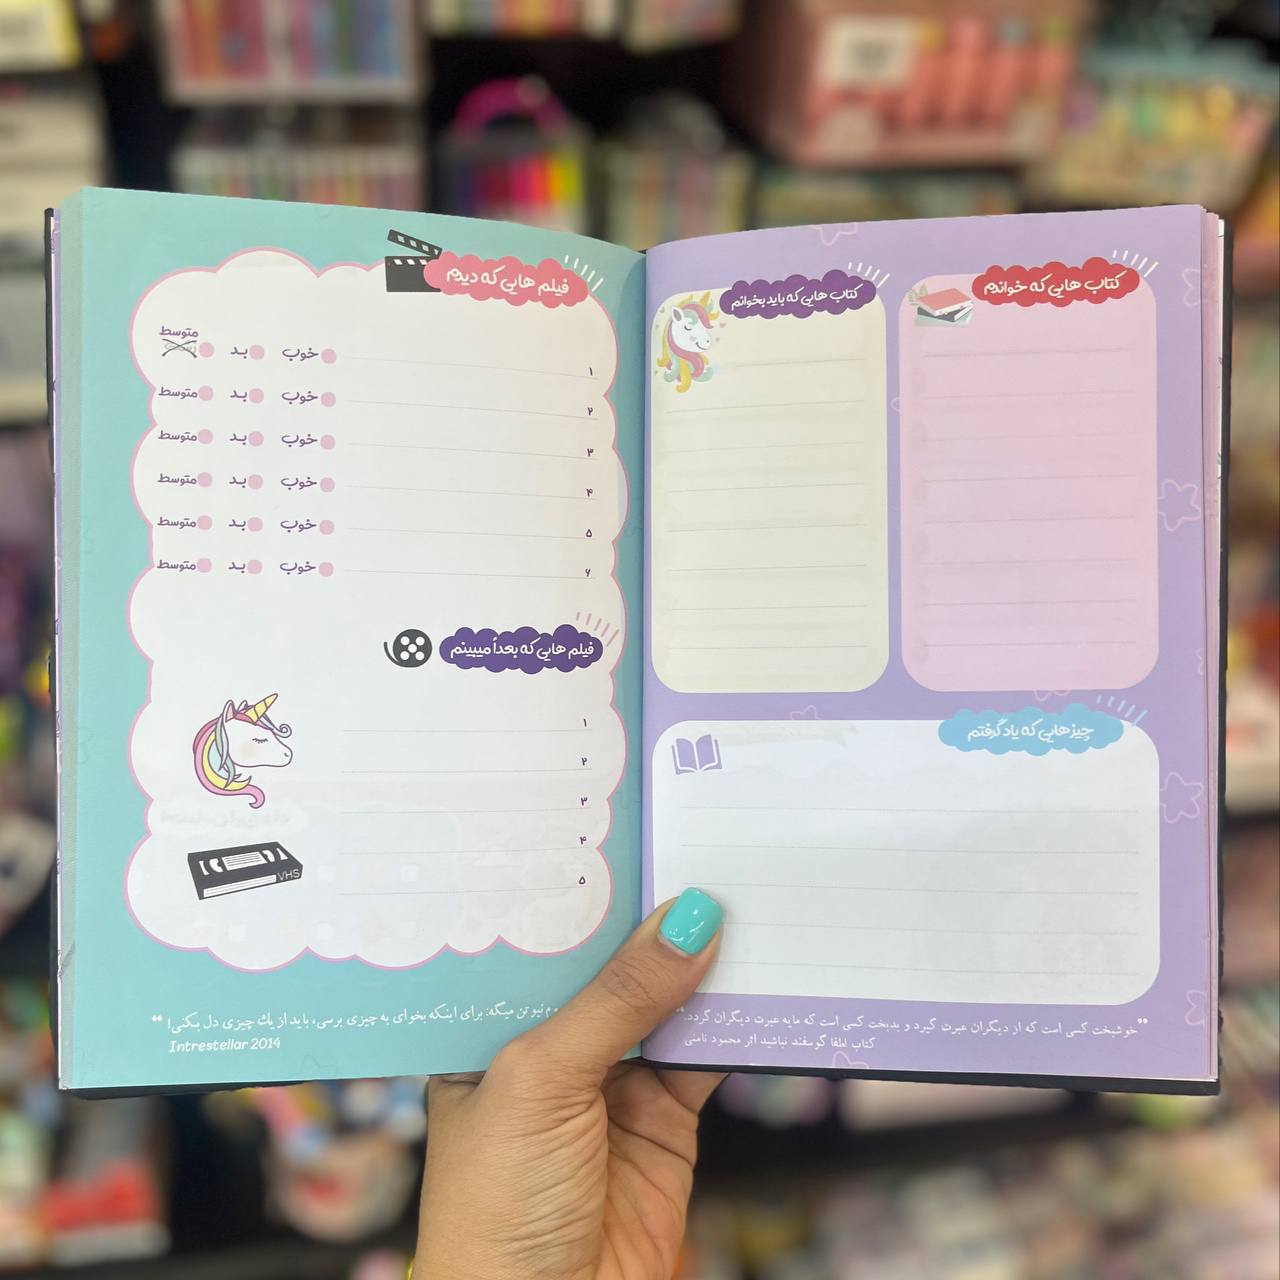 کتاب هایی که خواندم
کتاب هایی که باید بخوانم
چیزهایی که یاد گرفتم
"خوشبخت کسی است که از دیگران عبرت گیرد و بدبخت کسی است که مایه عبرت دیگران گردد."
کتاب لطفا گوسفند نباشید اثر محمود نامنی
فیلم هایی که دیدم
۱ خوب بد متوسط
۲ خوب بد متوسط
۳ خوب بد متوسط
۴ خوب بد متوسط
۵ خوب بد متوسط
۶ خوب بد متوسط
فیلم هایی که بعداً میبینم
۱
۲
۳
۴
۵
VHS
م نیوتن میگه: برای اینکه بخوای به چیزی برسی، باید از یك چیزی دل بکنی! "
Intrestellar 2014